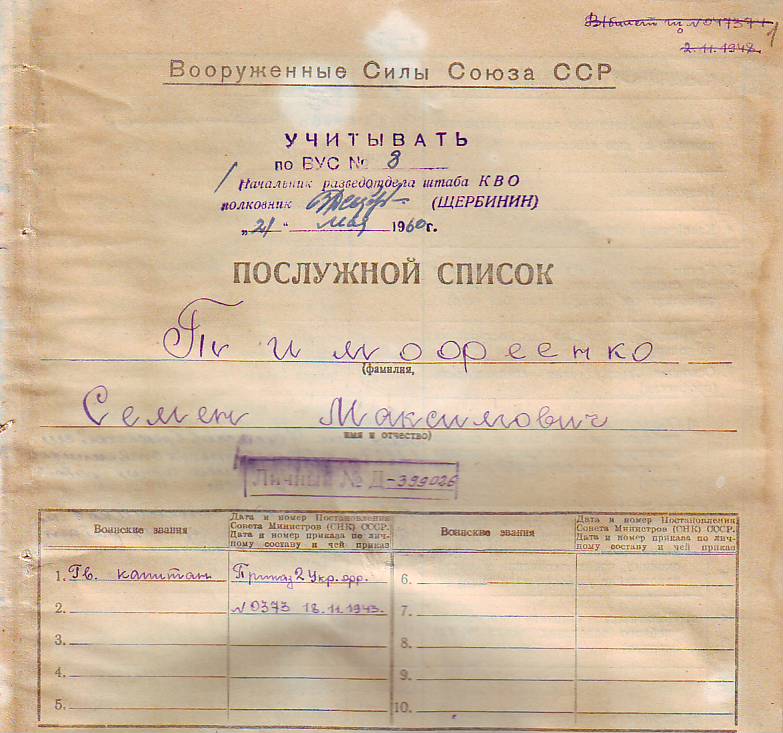 В/билет № 047371
2.11.1948.
1
Вооруженные Силы Союза ССР
УЧИТЫВАТЬ
по ВУС № 8
Начальник разведотдела штаба КВО
полковник (ЩЕРБИНИН)
„21“ мая 1960г.
ПОСЛУЖНОЙ СПИСОК
Тимофеенко
(фамилия,
Семен Максимович
имя и отчество)
Личный № Д-399026
Воинские звания
Дата и номер Постановления
Совета Министров (СНК) СССР.
Дата и номер приказа по лич-
ному составу и чей приказ
Воинские звания
Дата и номер Постановления
Совета Министров (СНК) СССР.
Дата и номер приказа по лич-
ному составу и чей приказ
1. Гв. капитан Приказ 2 Укр. фр. 6.
2. № 0373 18.11.1943. 7.
3. 8.
4. 9.
5. 10.